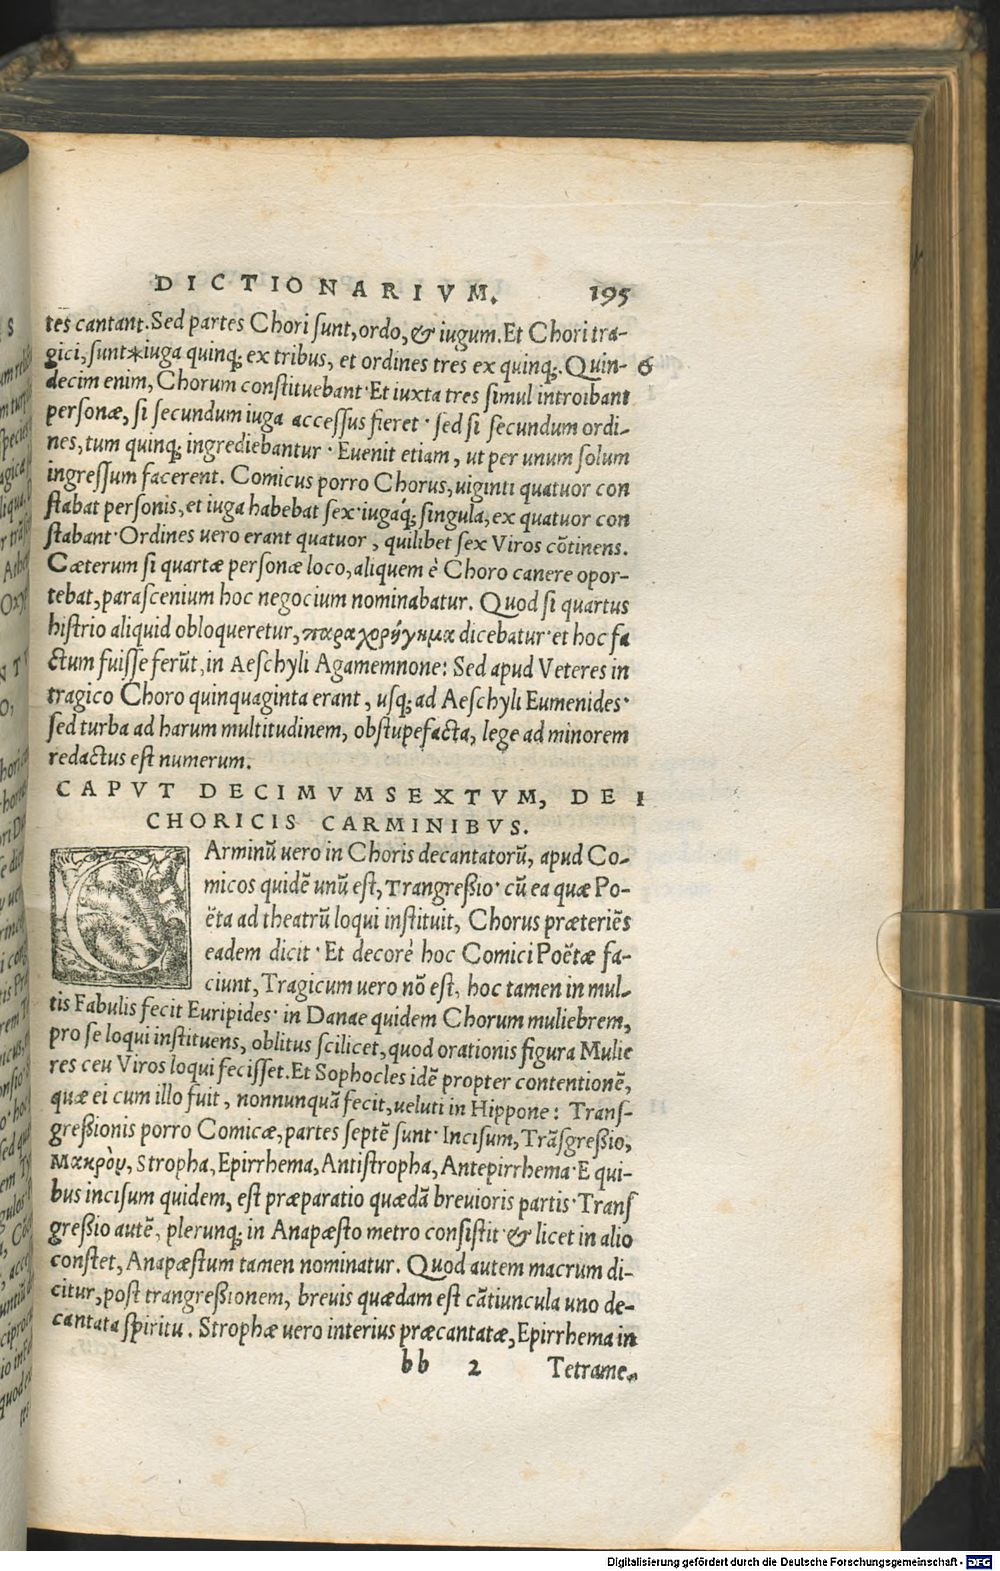 DICTIONARIVM. 195
tes cantant. Sed partes Chori sunt, ordo, & iugum. Et Chori tra-
gici, sunt*iuga quinq; ex tribus, et ordines tres ex quinq;. Quin- 6
decim enim, Chorum constituebant· Et iuxta tres simul introibant
personæ, si secundum iuga accessus fieret· sed si secundum ordi-
nes, tum quinq; ingrediebantur· Euenit etiam, ut per unum solum
ingressum facerent. Comicus porro Chorus, uiginti quatuor con
stabat personis, et iuga habebat sex· iugáq; singula, ex quatuor con
stabant· Ordines uero erant quatuor, quilibet sex Viros cõtinens.
Cæterum si quartæ personæ loco, aliquem è Choro canere opor-
tebat, parascenium hoc negocium nominabatur. Quod si quartus
histrio aliquid obloqueretur, παραχορήγημα dicebatur· et hoc fa
ctum fuisse ferũt, in Aeschyli Agamemnone: Sed apud Veteres in
tragico Choro quinquaginta erant, usq; ad Aeschyli Eumenides·
sed turba ad harum multitudinem, obstupefacta, lege ad minorem
redactus est numerum.
CAPVT DECIMVMSEXTVM, DE I
CHORICIS CARMINIBVS.
CArminũ uero in Choris decantatorũ, apud Co-
micos quidẽ unũ est, Trangreßio· cũ ea quæ Po-
ëta ad theatrũ loqui instituit, Chorus præteriẽs
eadem dicit· Et decorè hoc Comici Poëtæ fa-
ciunt, Tragicum uero nõ est, hoc tamen in mul-
tis Fabulis fecit Euripides· in Danae quidem Chorum muliebrem,
pro se loqui instituens, oblitus scilicet, quod orationis figura Mulie
res ceu Viros loqui fecisset. Et Sophocles idẽ propter contentionẽ,
quæ ei cum illo fuit, nonnunquã fecit, ueluti in Hippone: Trans-
greßionis porro Comicæ, partes septẽ sunt· Incisum, Trãsgreßio,
Μακρὸν, Stropha, Epirrhema, Antistropha, Antepirrhema· E qui-
bus incisum quidem, est præparatio quædã breuioris partis· Trans
greßio autẽ, plerunq; in Anapæsto metro consistit· & licet in alio
constet, Anapæstum tamen nominatur. Quod autem macrum di-
citur, post trangreßionem, breuis quædam est cãtiuncula uno de-
cantata spiritu. Strophæ uero interius præcantatæ, Epirrhema in
bb 2 Tetrame-
Digitalisierung gefördert durch die Deutsche Forschungsgemeinschaft - DFG